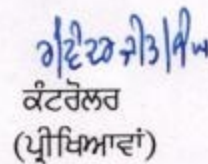 ਕੰਟਰੋਲਰ
(ਪ੍ਰੀਖਿਆਵਾਂ)